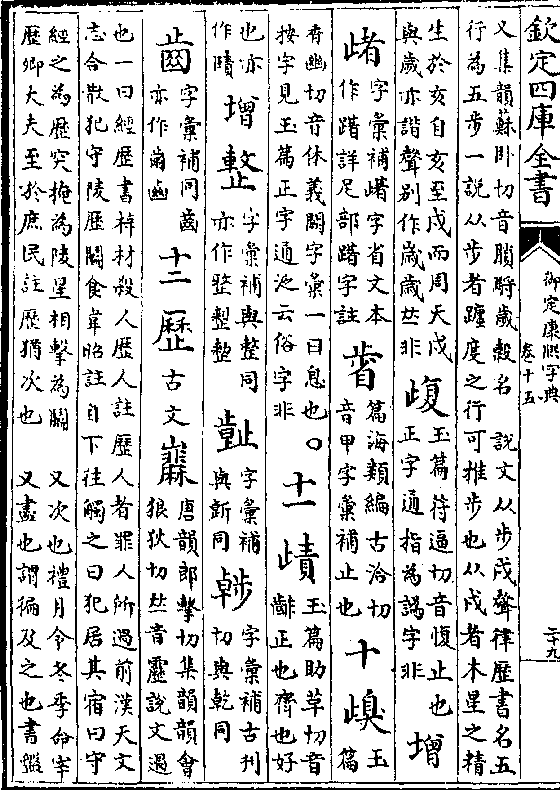 欽定四庫全書
御定康熙字典
卷十五
二十九
又集韻蘇卧切音膹時歲穀名 說文从步戌聲律歷書名五
行為五步一說从步者躔度之行可推步也从戌者木星之精
生於亥自亥至戌而周天戌
與歲亦諧聲别作嵗歳𠀤非
玉篇符逼切音愎止也
正字通指為譌字非
增
字彙補字省文本
作踷詳足部踷字註
篇海類編古洽切
音甲字彙補止也
十
玉
篇
香幽切音休義闕字彙一曰息也○
按字見玉篇正字通沈云俗字非
十一
玉篇助草切音
齰正也齊也好
也亦
作
增
整
字彙補與整同
亦作
字彙補
與斲同
字彙補古刊
切與乾同
字彙補同齒
亦作
十二
歷
古文
唐韻郎擊切集韻韻會
狼狄切𠀤音靂說文過
也一曰經歷書梓材殺人歷人註歷人者罪人所過前漢天文
志合散犯守陵歷鬭食韋昭註自下往觸之曰犯居其宿曰守
經之為歷突掩為陵星相擊為鬭 又次也禮月令冬季命宰
歷卿大夫至於庶民註歷猶次也 又盡也謂徧及之也書盤